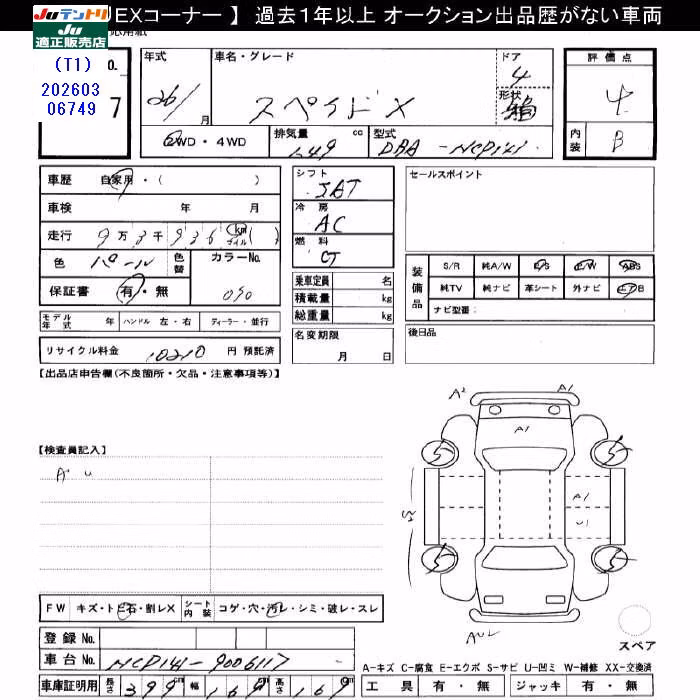 EXコーナー 】 過去1年以上 オークション出品歴がない車両
Juテントリ
Ju
適正販売店
(T1)
202603
06749
O.
7
年式
26/
月
車名・グレード
スペイド X
ドア
4
形状
評価点
4
内装
B
2WD・4WD
排気量
cc
1.49
型式
DBA - NCP141
車歴
自家用・( )
車検
年
月
走行
9万3千936
km
マイル
( )
色
パール
色替
カラーNo.
070
保証書
有・無
シフト
IAT
冷房
AC
燃料
乗車定員
名
積載量
kg
総重量
kg
名変期限
月
日
セールスポイント
装備品
S/R
純A/W
P/S
P/W
ABS
純TV
純ナビ
革シート
外ナビ
エアB
ナビ型番:
後日品
モデル年式
年
ハンドル
左・右
ディーラー・並行
リサイクル料金
10210
円 預託済
【出品店申告欄(不良箇所・欠品・注意事項等)】
【検査員記入】
A U
A2
A1
A1
5
5
A1
S1
U1
5
5
AU2
スペア
FW
キズ・トビ石・割レX
シート内装
コゲ・穴・汚レ・シミ・破レ・スレ
登録 No.
車台 No.
NCP141-9006117
車庫証明用
長さ
399
cm
幅
169
cm
高さ
169
cm
A-キズ C-腐食 E-エクボ S-サビ U-凹ミ W-補修 XX-交換済
工具
有・無
ジャッキ
有・無